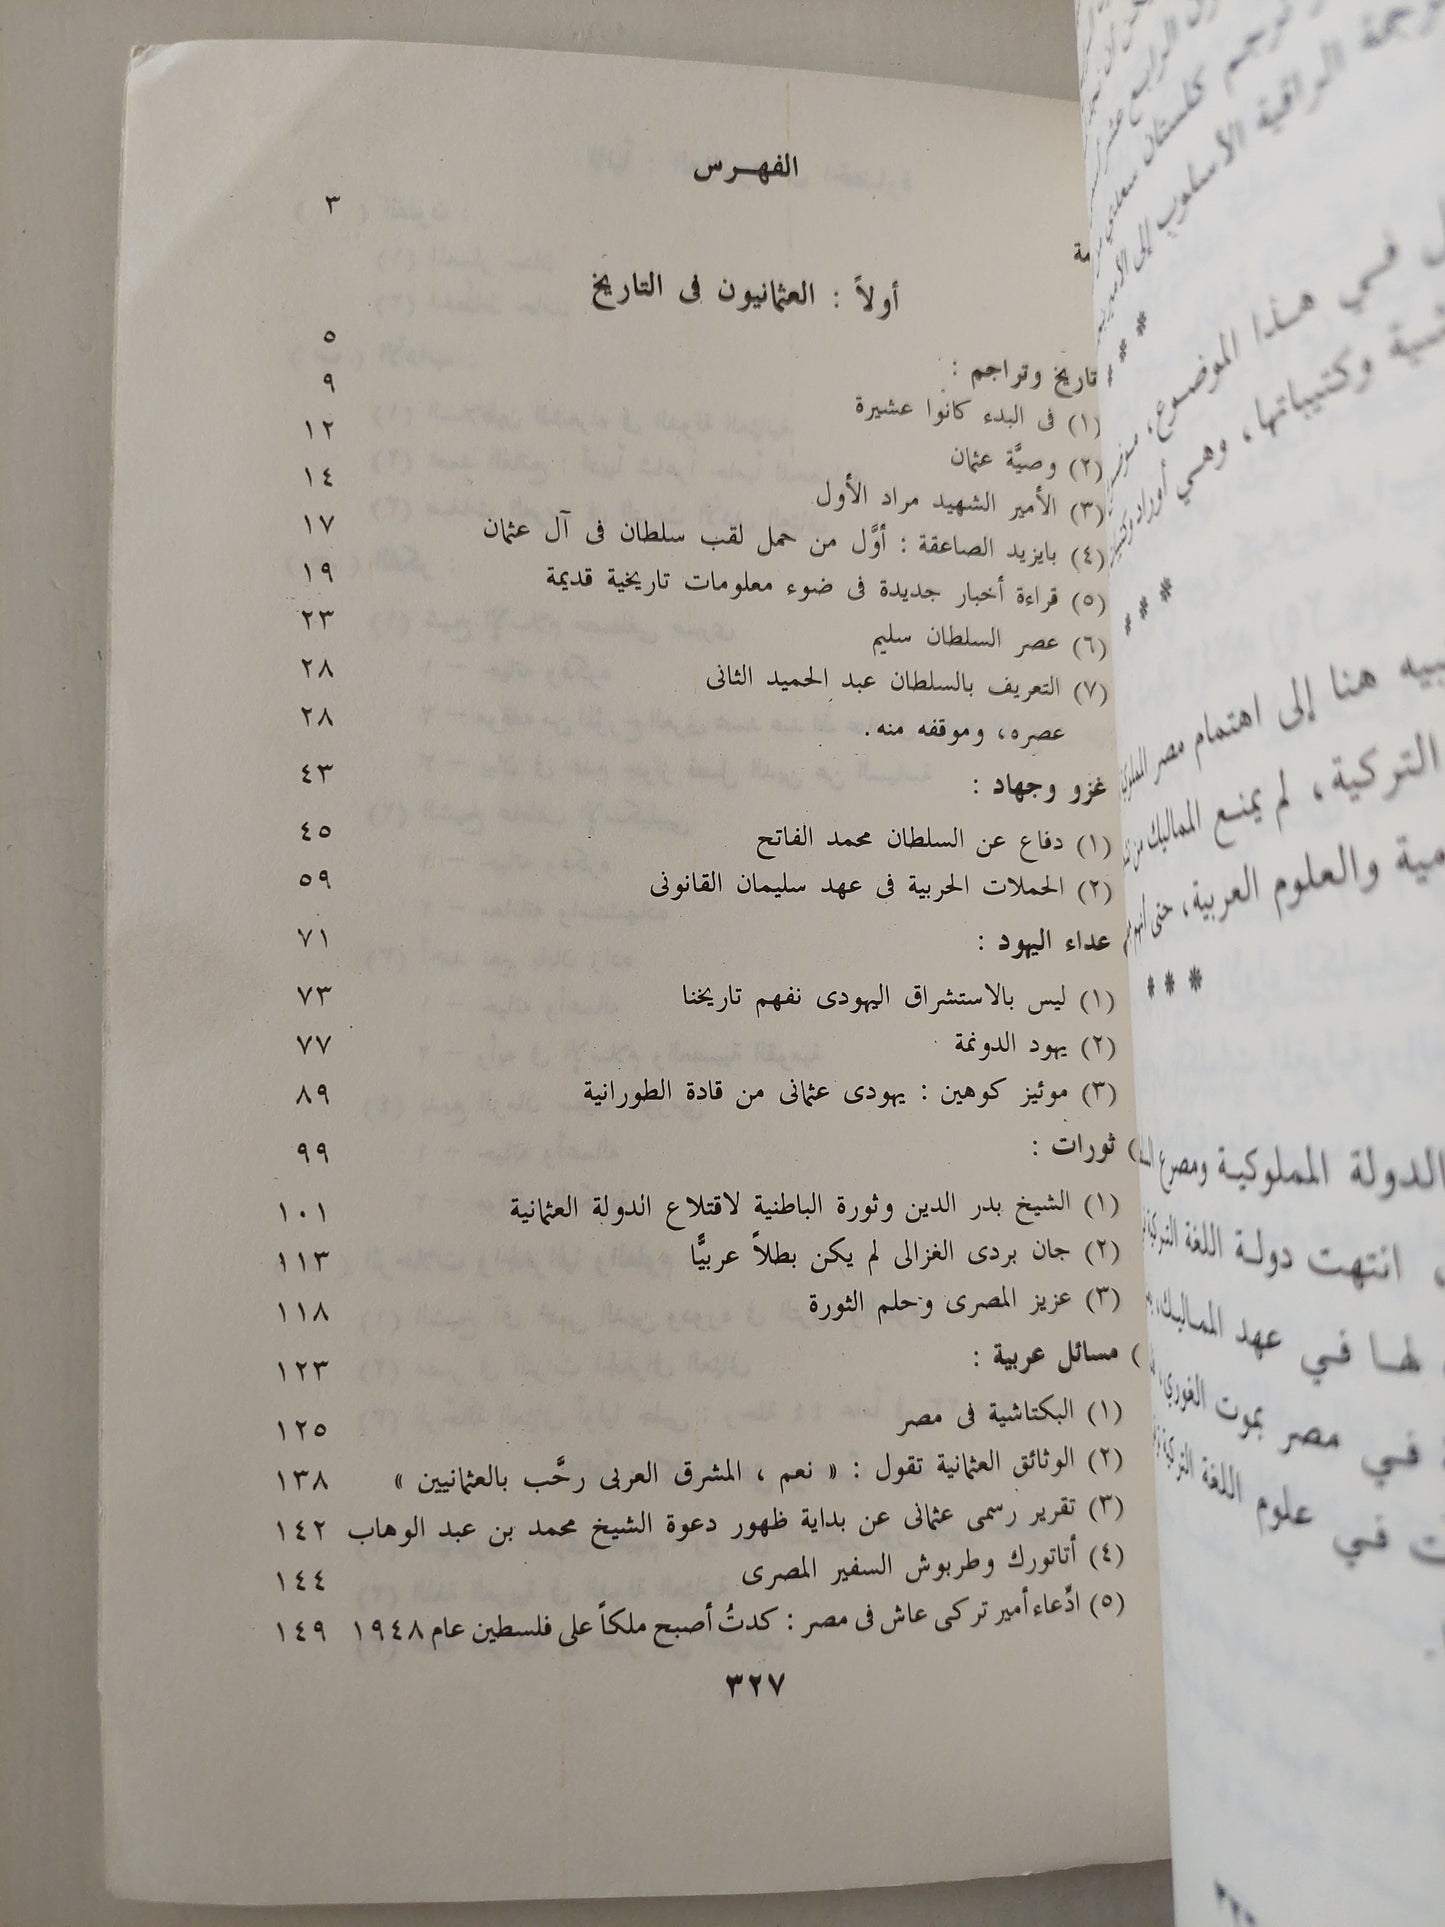 الفهـرس
٣
أولاً : العثمانيون فى التاريخ
تاريخ وتراجم : ٥
(١) فى البدء كانوا عشيرة ٩
(٢) وصيَّة عثمان ١٢
(٣) الأمير الشهيد مراد الأول ١٤
(٤) بايزيد الصاعقة : أوَّل من حمل لقب سلطان فى آل عثمان ١٧
(٥) قراءة أخبار جديدة فى ضوء معلومات تاريخية قديمة ١٩
(٦) عصر السلطان سليم ٢٣
(٧) التعريف بالسلطان عبد الحميد الثانى ٢٨
عصره، وموقفه منه. ٢٨
غزو وجهاد : ٤٣
(١) دفاع عن السلطان محمد الفاتح ٤٥
(٢) الحملات الحربية فى عهد سليمان القانونى ٥٩
عداء اليهود : ٧١
(١) ليس بالاستشراق اليهودى نفهم تاريخنا ٧٣
(٢) يهود الدونمة ٧٧
(٣) موئيز كوهين : يهودى عثمانى من قادة الطورانية ٨٩
) ثورات : ٩٩
(١) الشيخ بدر الدين وثورة الباطنية لاقتلاع الدولة العثمانية ١٠١
(٢) جان بردى الغزالى لم يكن بطلاً عربيًّا ١١٣
(٣) عزيز المصرى وحلم الثورة ١١٨
) مسائل عربية : ١٢٣
(١) البكتاشية فى مصر ١٢٥
(٢) الوثائق العثمانية تقول : « نعم ، المشرق العربى رحَّب بالعثمانيين » ١٣٨
(٣) تقرير رسمى عثمانى عن بداية ظهور دعوة الشيخ محمد بن عبد الوهاب ١٤٢
(٤) أتاتورك وطربوش السفير المصرى ١٤٤
(٥) ادِّعاء أمير تركى عاش فى مصر : كدتُ أصبح ملكاً على فلسطين عام ١٩٤٨ ١٤٩
٣٢٧
ترجم كلستان سعدي
الراقية الأسلوب إلى
* * *
فـي هـذا الموضـوع،
وكتيباتها، وهـي أوراد
* * *
هنا إلى اهتمام مصر
التركية، لم يمنـع المماليك من
والعلوم العربية، حتى أنهم
* * *
الدولة المملوكيـة ومصرع
انتهت دولـة اللغة التركية
لهـا في عهد المماليـك،
فـي مصر بموت الغوري،
في علوم اللغة التركية